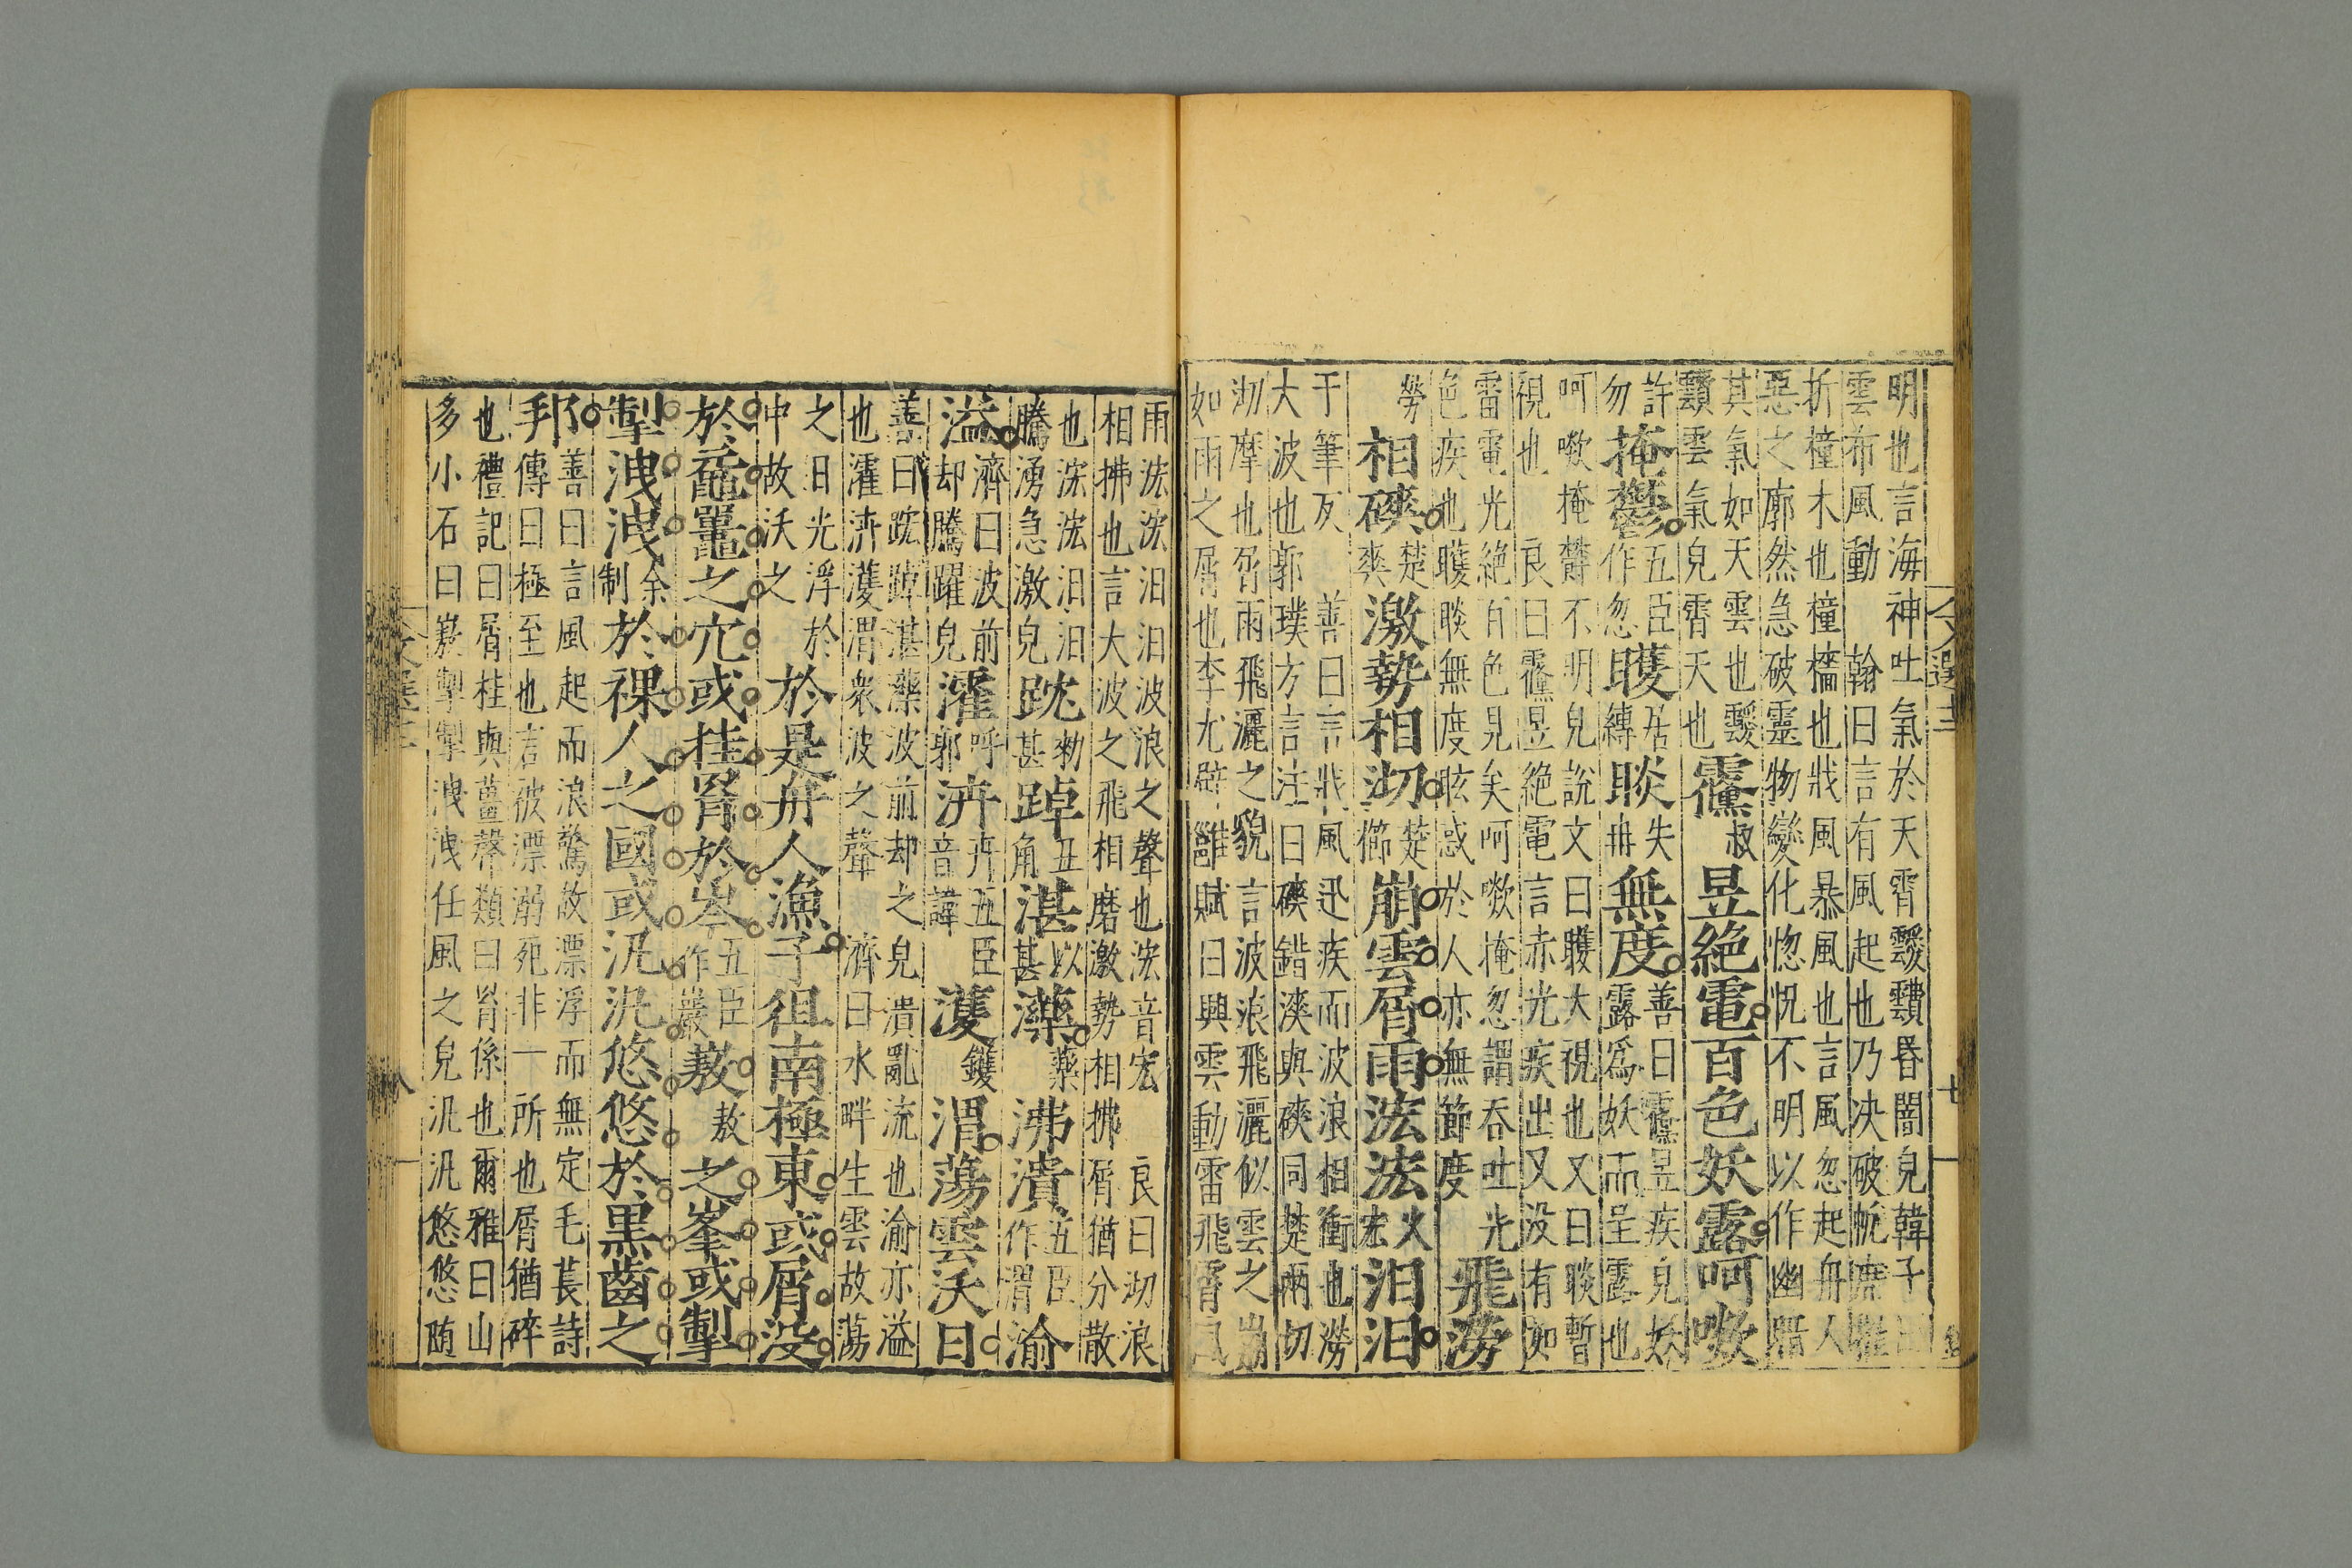 明也言海神吐氣於天霄靉靅昏闇皃韓子曰
雲布風動　翰曰言有風起也乃决破帆席摧
折橦木也橦檣也戕風暴風也言風忽起舟人
惡之廓然急破靈物變化惚怳不明以作幽暗
其氣如天雲也靉
靅雲氣皃霄天也
䨴叔昱絶電百色妖露呵嗽
許勿掩鬱五臣作忽矆居縛睒失冉無度善曰䨴昱疾皃妖
露爲妖而呈露也
呵嗽掩鬱不明皃說文曰矆大視也又曰睒暫
視也　良曰䨴昱絶電言赤光疾出又没有如
雷電光絶百色見矣呵嗽掩忽謂吞吐光
色疾也矆睒無度眩惑於人亦無節度
飛澇
勞相磢楚爽激勢相沏楚櫛崩雲屑雨浤浤火宏汨汨
于筆反　善曰言戕風迅疾而波浪相衝也澇
大波也郭璞方言注曰磢錯㵂與磢同楚兩切
沏摩也屑雨飛灑之貌言波浪飛灑似雲之崩
如雨之屑也李尤辟雝賦曰興雲動雷飛屑風
文選十二
七
雨浤浤汨汨波浪之聲也浤音宏　良曰沏浪
相拂也言大波之飛相磨激勢相拂屑猶分散
也浤浤汨汨
騰湧急激皃
䟢勑甚踔丑角湛以甚㶋藥沸潰五臣作渭渝
溢濟曰波前却騰躍皃瀖呼郭泋卉五臣音諱濩鑊渭蕩雲沃日
善曰䟢踔湛㶋波前却之皃潰亂流也渝亦溢
也瀖泋濩渭衆波之聲　濟曰水畔生雲故蕩
之日光浮於
中故沃之
於是舟人漁子徂南極東或屑没
於黿鼉之穴或挂罥於岑五臣作巖㟼敖之峯或掣
掣洩洩余制於裸人之國或汎汎悠悠於黒齒之
邦善曰言風起而浪驚故漂浮而無定毛萇詩
傳曰極至也言彼漂溺死非一所也屑猶碎
也禮記曰屑桂與薑聲類曰罥係也爾雅曰山
多小石曰㟼掣掣洩洩任風之皃汎汎悠悠随
八